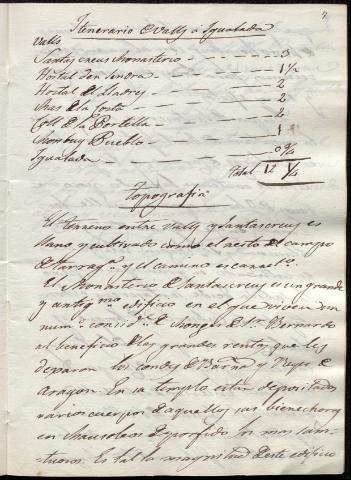 7
Itinerario de Valls á Igualada
Valls
Santas creus Monasterio 3
Hostal den Sendra 1 1/2
Hostal de Lladres 2
Mas de la Costa 2
Coll de la Portella 2
Monbuy Pueblo 1
Igualada 0 3/4
Total 12 1/4
Topografia
El terreno entre Valls y Santascreus es
llano y cultivado como el resto del campo
de Tarrag.ª y el camino es carret.º
El Monasterio de Santascreus es un grande
y antig.mo edificio en el que viven un
num.º consid.e de Monges de S.n Bernardo
al beneficio de las grandes rentas que les
dejaron los condes de Barña y Reyes de
Aragon. En su templo estan depositados
varios cuerpos de aquellos sus bienechores
en Mausoleos de porfido los mas sun-
tuosos. Es tal la magnitud de este edificio